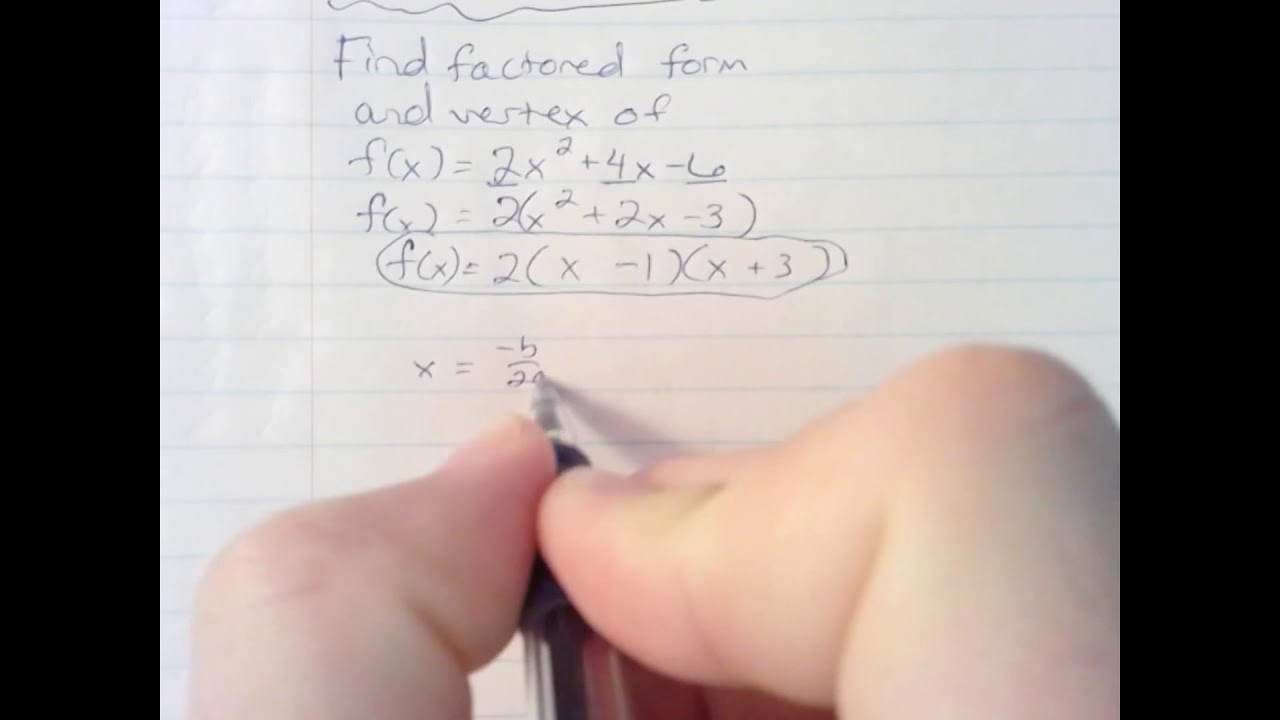 Find factored form
and vertex of
f(x) = 2x² + 4x - 6
f(x) = 2(x² + 2x - 3)
f(x) = 2(x - 1)(x + 3)
x = -b/2a